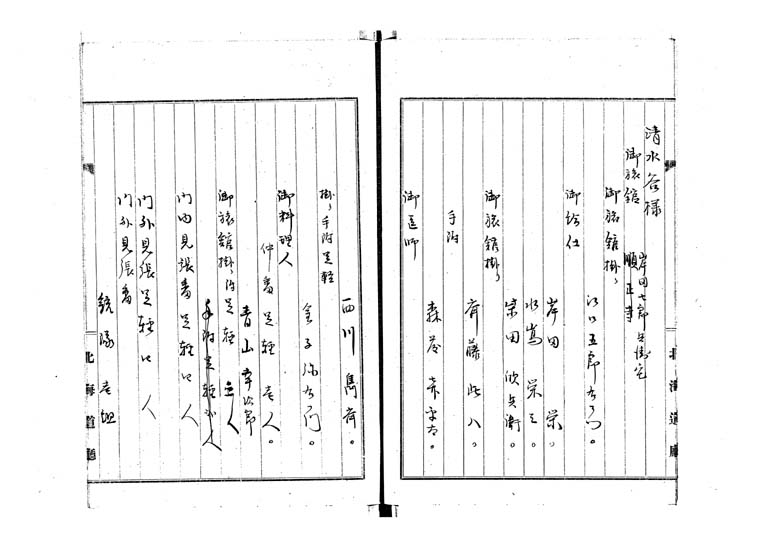 清水谷様
御旅館
順正寺
岸田七郎兵衛宅
御旅館掛り
江口五郎右衛門。
御給仕
岸田 栄。
水嶌 栄之。
柴田 次兵衛。
御旅館掛り
斉藤 此八。
手附
御医師
北海道廰
西川
掛り手附足軽
金子
御料理人
仲番足軽 壱人。
青山幸次郎
御旅館掛り附足軽 壱人
手附足軽 人
門内見張番足軽 人
門外見張足軽 人
門外見張番
銃隊
北海道廰